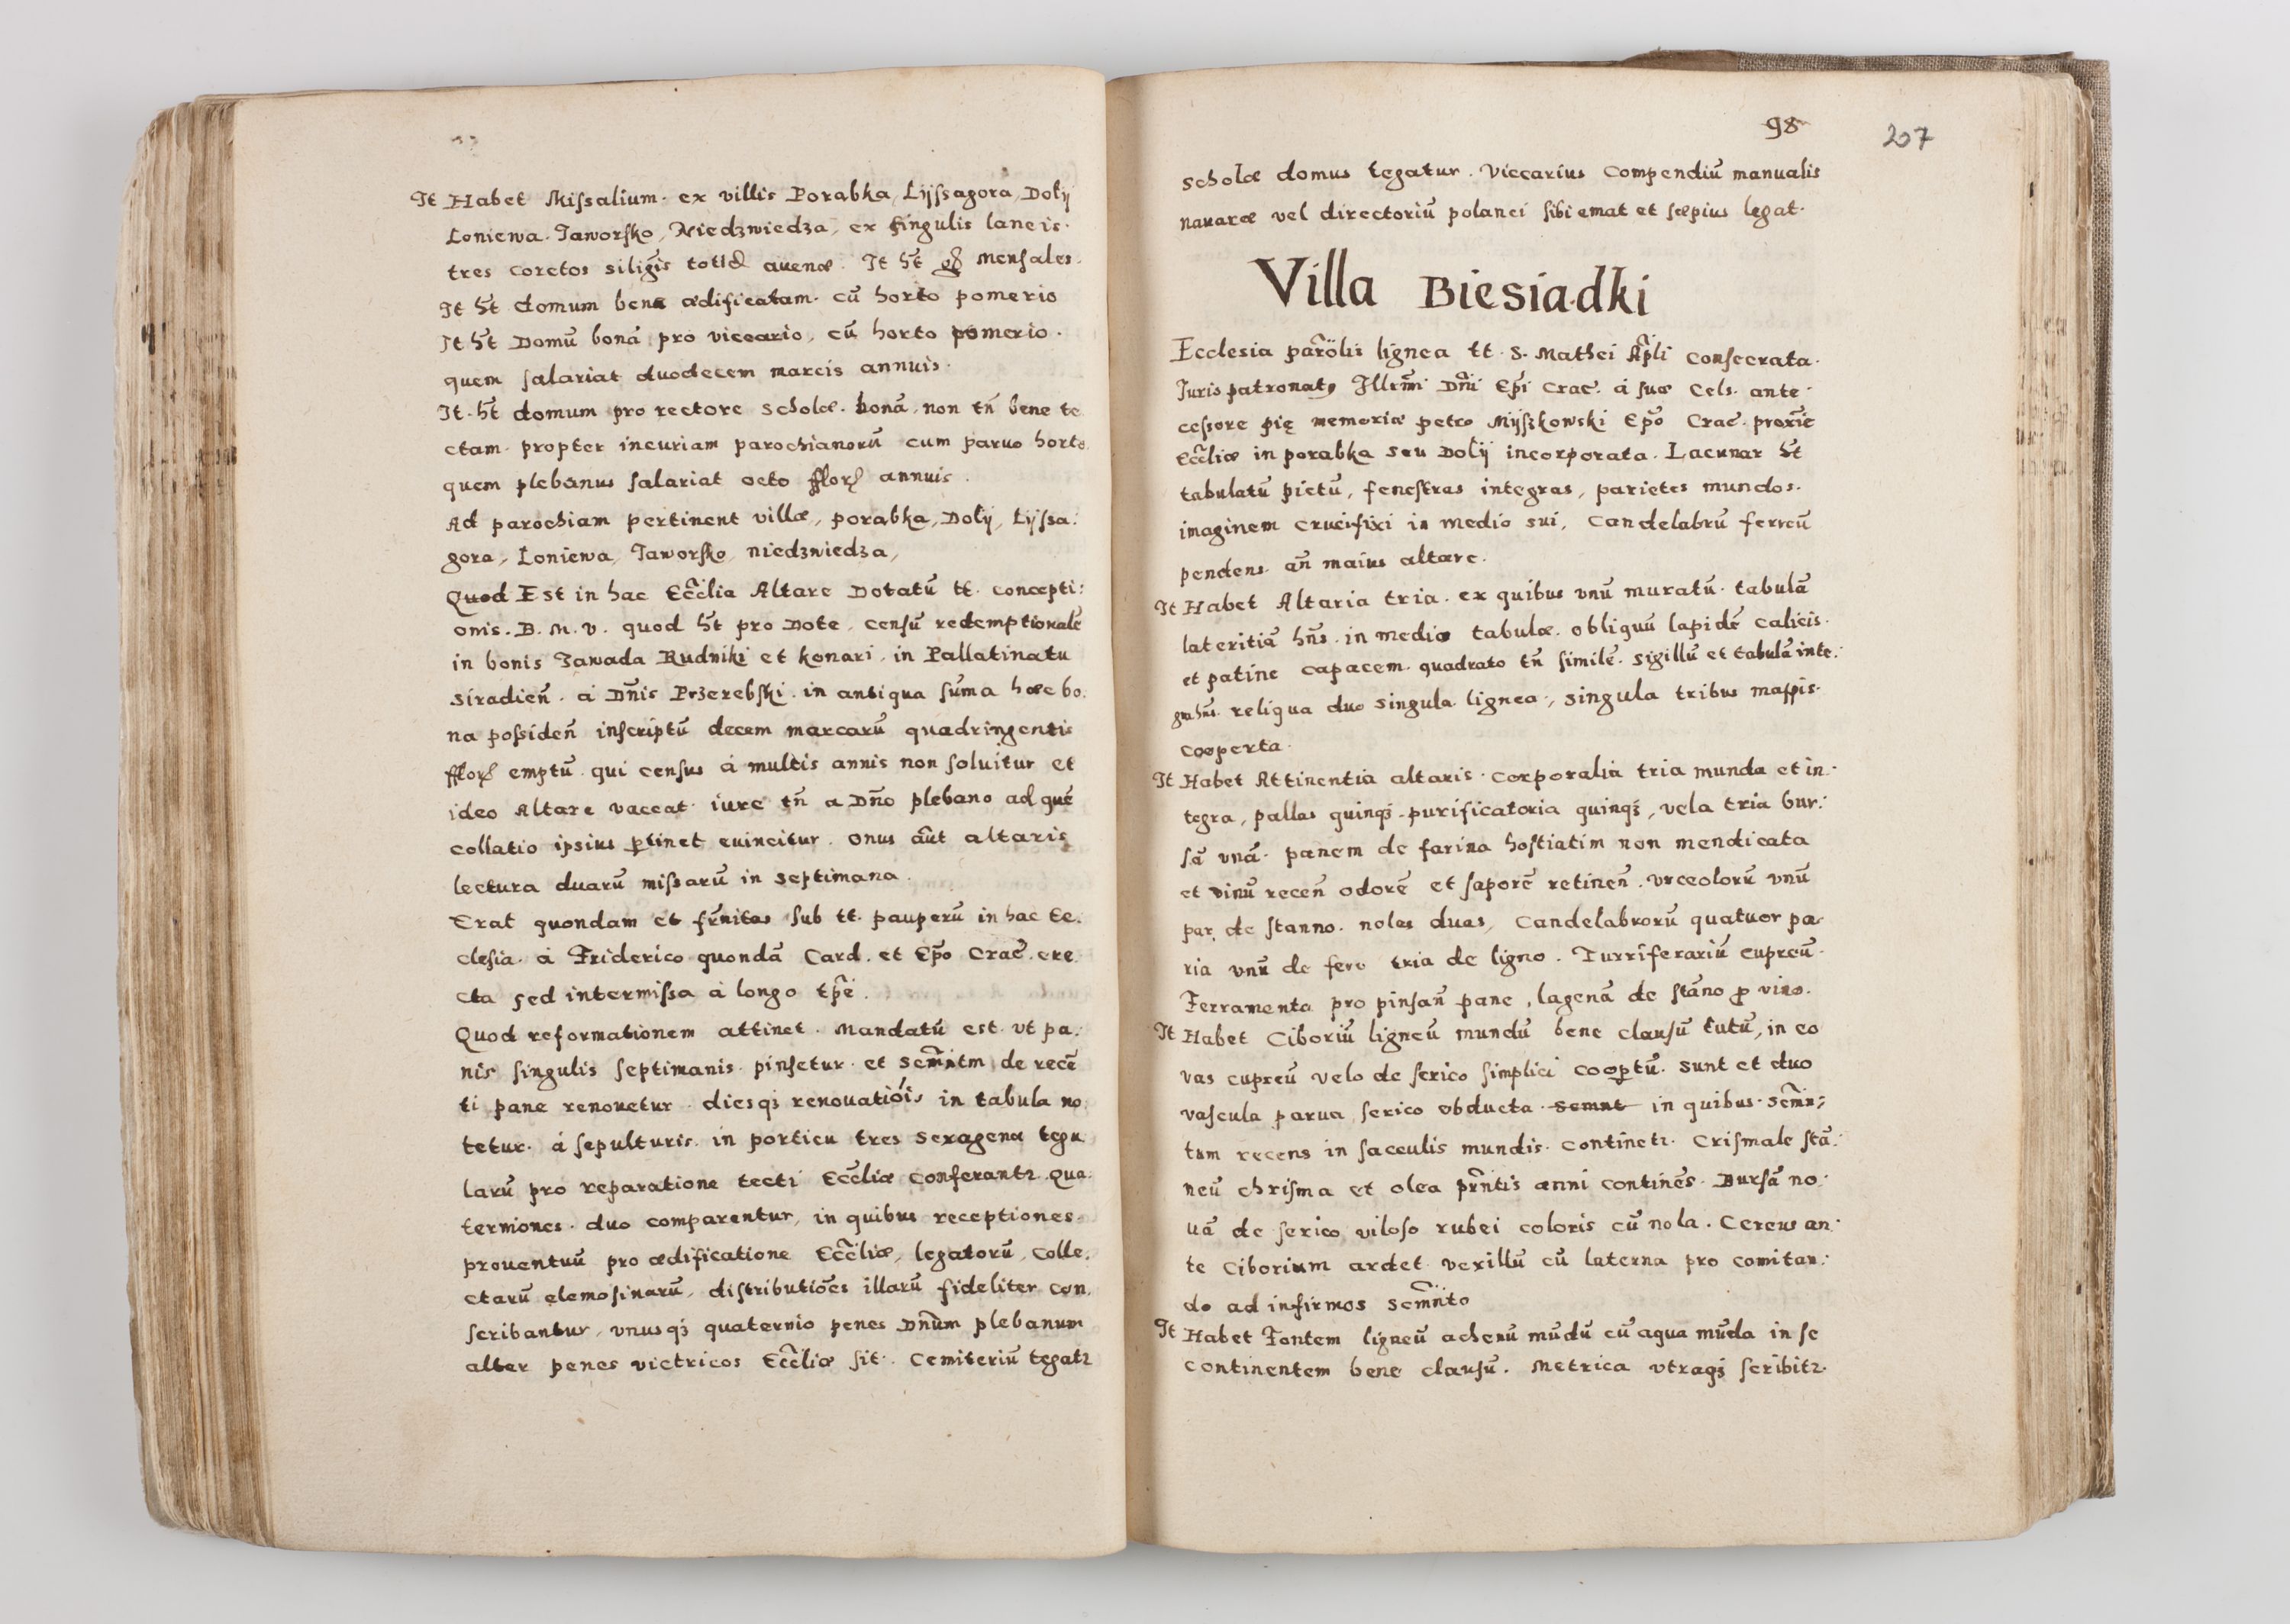 It Habet Missalium. ex villis Porabka, Lijssagora, Dolij
Loniewa. Jaworsko, Niedzwiedza, ex singulis laneis.
tres coretos siliginis totid avenæ. It h̃t mensales.
It h̃t domum bene ædificatam. cū horto pomerio
It h̃t Domū bonā pro viccario, cū horto pomerio.
quem salariat duodecem marcis annuis.
It. h̃t domum pro rectore scholæ. bonā, non tñ bene te
ctam. propter incuriam parochianorū cum paruo horto.
quem plebanus salariat octo fflor annuis.
Ad parochiam pertinent villæ, porabka, Dolij, Lijssa:
gora, Loniewa, Jaworsko, niedzwiedza,
Quod Est in hac Eccl̃ia Altare Dotatū tt. concepti:
onis. B. M. V. quod h̃t pro Dote, censū redemptionalē
in bonis Zawada Rudniki et konari, in Pallatinatu
siradien̄. à Dñis Przerebski. in antiqua sūma hæc bo.
na possiden̄ inscriptū decem marcarū quadringentis
fflor emptū. qui census à multis annis non soluitur et
ideo Altare vaccat. iure tñ a Dño plebano ad quē
collatio ipsius ptinet euincitur. onus aūt altaris
lectura duarū missarū in septimana.
Erat quondam et fr̃nitas sub tt. pauperū in hac Ec.
clesia. à Friderico quondā Card. et Ep̃o Crac̃. ere
cta sed intermissa à longo tp̃e.
Quod reformationem attinet. Mandatū est. vt pa:
nis singulis septimanis. pinsetur. et scm̃ntm de recē
ti pane renouetur. diesqꝫ renouatiōis in tabula no.
tetur. à sepulturis. in porticu tres sexagenæ tegu
larū pro reparatione tecti Eccl̃iæ conferantr. Qua.
terniones. duo comparentur, in quibus receptiones
prouentuū pro ædificatione Eccl̃iæ, legatorū, colle.
ctarū elemosinarū, distributiões illarū fideliter con.
scribantur, vnusqꝫ quaternio penes Dñum plebanum
alter penes victricos Eccl̃iæ sit. Cemiteriū tegatr
98
207
scholæ domus tegatur. Viccarius Compendiū manualis
nauaræ vel directoriū polanci sibi emat et sæpius legat.
Villa Biesiadki
Ecclesia parõlis lignea tt. S. Mathei Ap̃li consecrata.
Juris patronatꝯ Illrm̃i Dñi Ep̃i Crac̃. à suæ Cels. ante
cessore pię memoriæ petro Mijszkowski Ep̃o Crac̃. proxĩe
Eccl̃iæ in porabka seu Dolij incorporata. Lacunar h̃t
tabulatū pictū, fenestras integras, parietes mundos.
imaginem crucifixi in medio sui, Candelabrū ferreū
pendens. añ maius altare.
It Habet Altaria tria. ex quibus vnū muratū. tabulā
lateritiā hñs. in medio tabulæ. obliquū lapidē calicis.
et patine capacem. quadrato tñ similē. sigillū et tabulā inte:
gra hñs. reliqua duo singula lignea, singula tribus mappis.
cooperta.
It Habet Attinentia altaris. corporalia tria munda et in:
tegra, pallas quinqꝫ. purificatoria quinqꝫ, vela tria bur:
sā vnā. panem de farina hostiatim non mendicata
et vinū recen̄ odorē et saporē retinen̄. vrceolorū vnū
par de stanno. nolas duas, Candelabrorū quatuor pa
ria vnū de fero tria de ligno. Turriferariū cupreū.
Ferramenta pro pinsan̄ pane, lagenā de stāno p vino.
It Habet Ciboriū ligneū mundū bene clausū tutū, in eo
vas cupreū velo de serico simplici cooptū. sunt et duo
vascula parua serico obducta. scmnt in quibus. scm̃n:
tum recens in sacculis mundis. continetr. Crismale stā:
neū chrisma et olea pr̃ntis anni continēs. Bursā no:
uā de serico, viloso rubei coloris cū nola. Cereus an:
te Ciborium ardet vexillū cū laterna pro comitan:
do ad infirmos scm̃nto
It Habet Fontem ligneū achenū mūdū cū aqua mūda in se
continentem bene clausū. Metrica vtraqꝫ scribitr.